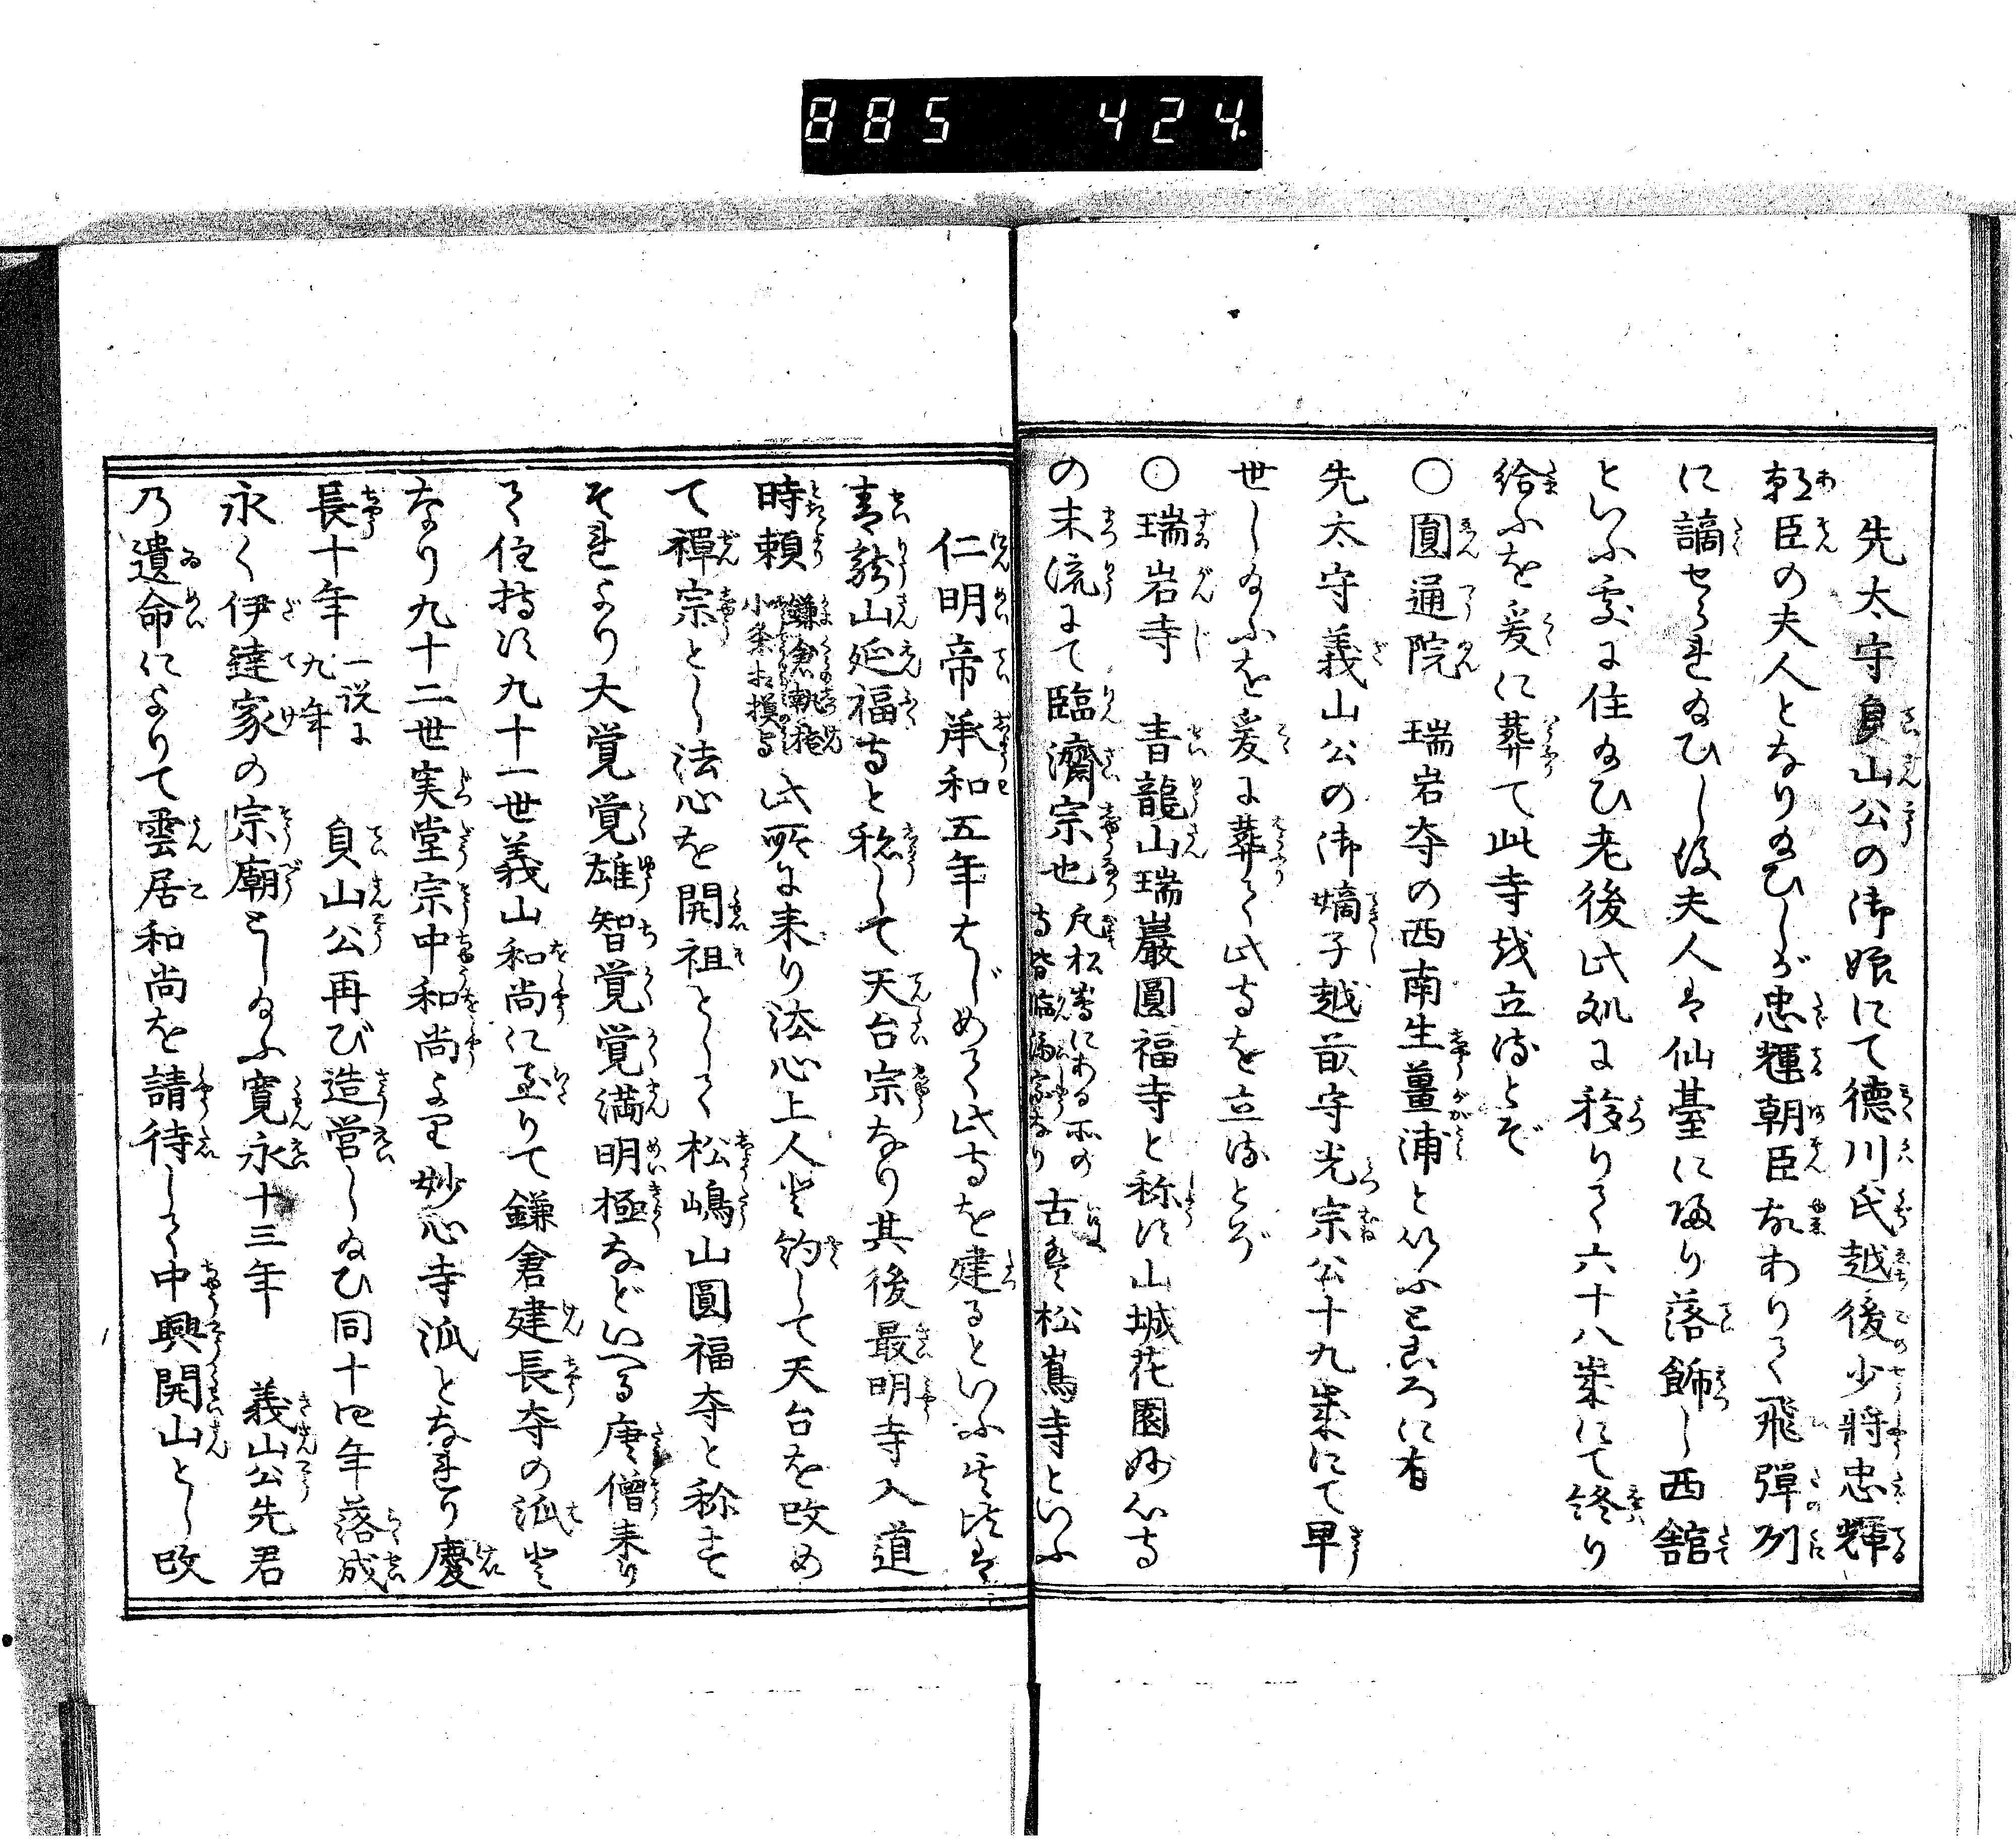 885 424.
先太守貞山公の御娘にて徳川氏越後少将忠輝
朝臣の夫人となり給ひしが忠輝朝臣故ありて飛彈州
に謫せられ給ひし後夫人は仙臺に帰り落飾し西舘
といふ处に住給ひ老後此処に移りて六十八歳にて終り
給ふを爰に葬て此寺を立るとぞ
○圓通院 瑞岩寺の西南生薑浦といふところに有
先太守義山公の御嫡子越前守光宗公十九歳にて早
世し給ふを爰に葬て此寺を立るとぞ
○瑞岩寺 青龍山瑞巖圓福寺と称す山城花園妙心寺
の末流にて臨濟宗也 凡松嶋にある所の寺皆臨済宗なり 古は松嶌寺といふ
仁明帝承和五年はじめて此寺を建るといふ其比は
青龍山延福寺と称して天台宗なり其後最明寺入道
時頼 鎌倉執権小条相模守 此所に来り法心上人と約して天台を改め
て禪宗とし法心を開祖として松嶋山圓福寺と称す
それより大覚覚雄智覚覚満明極などいへる唐僧来り
て住持す九十一世義山和尚に至りて鎌倉建長寺の派と
なり九十二世実堂宗中和尚より妙心寺派となれり慶
長十年 一説に九年 貞山公再び造営し給ひ同十四年落成
永く伊達家の宗廟とし給ふ寛永十三年 義山公先君
乃遺命によりて雲居和尚を請待して中興開山とし改